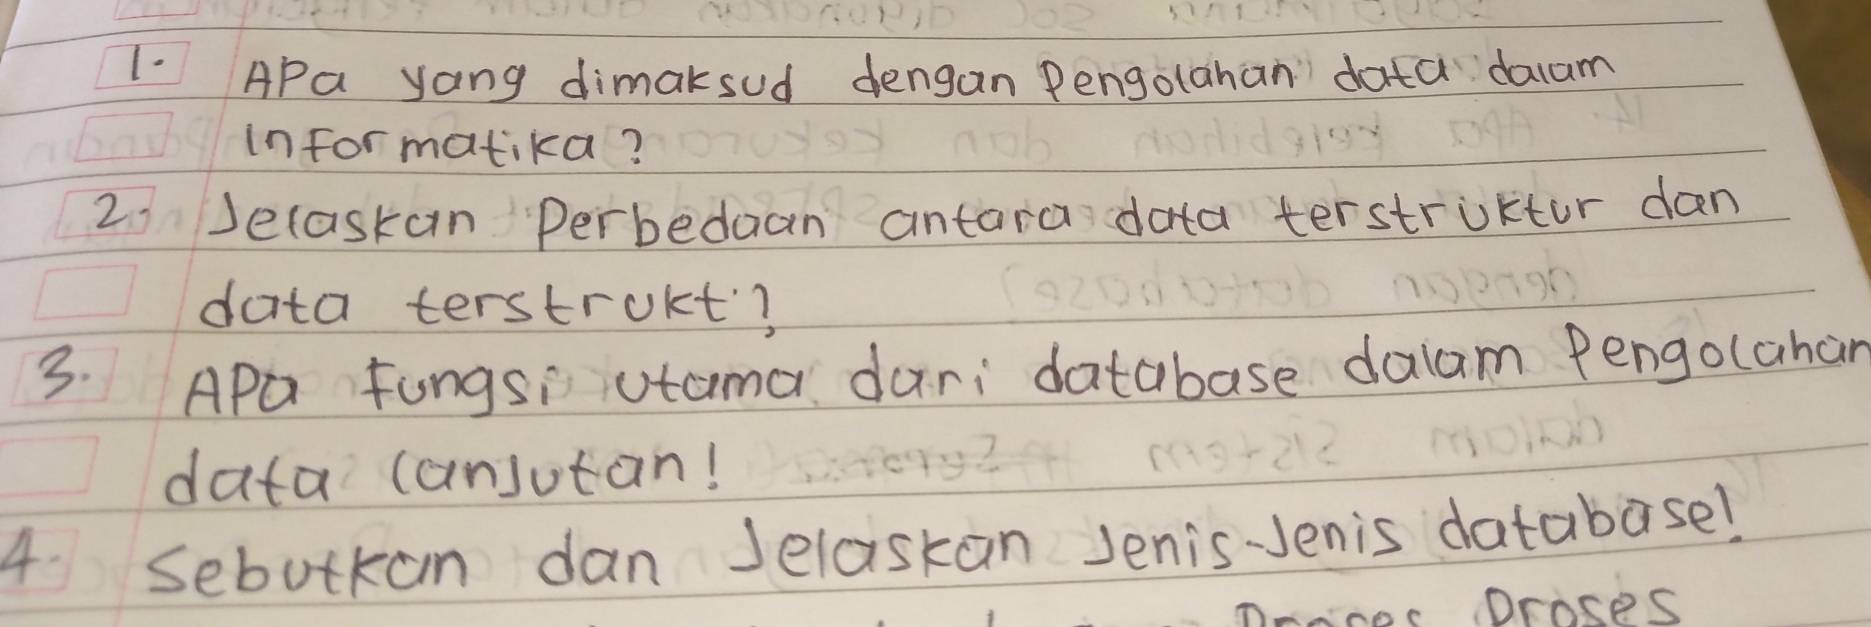 1. Apa yang dimaksud dengan Pengolahan data dalam
informatika?
2. Jelaskan Perbedaan antara data terstruktur dan
data terstrukt?
3. Apa fungsi utama dari database dalam Pengolahan
data lanjutan!
4. Sebutkan dan Jelaskan Jenis-Jenis database!
Proses